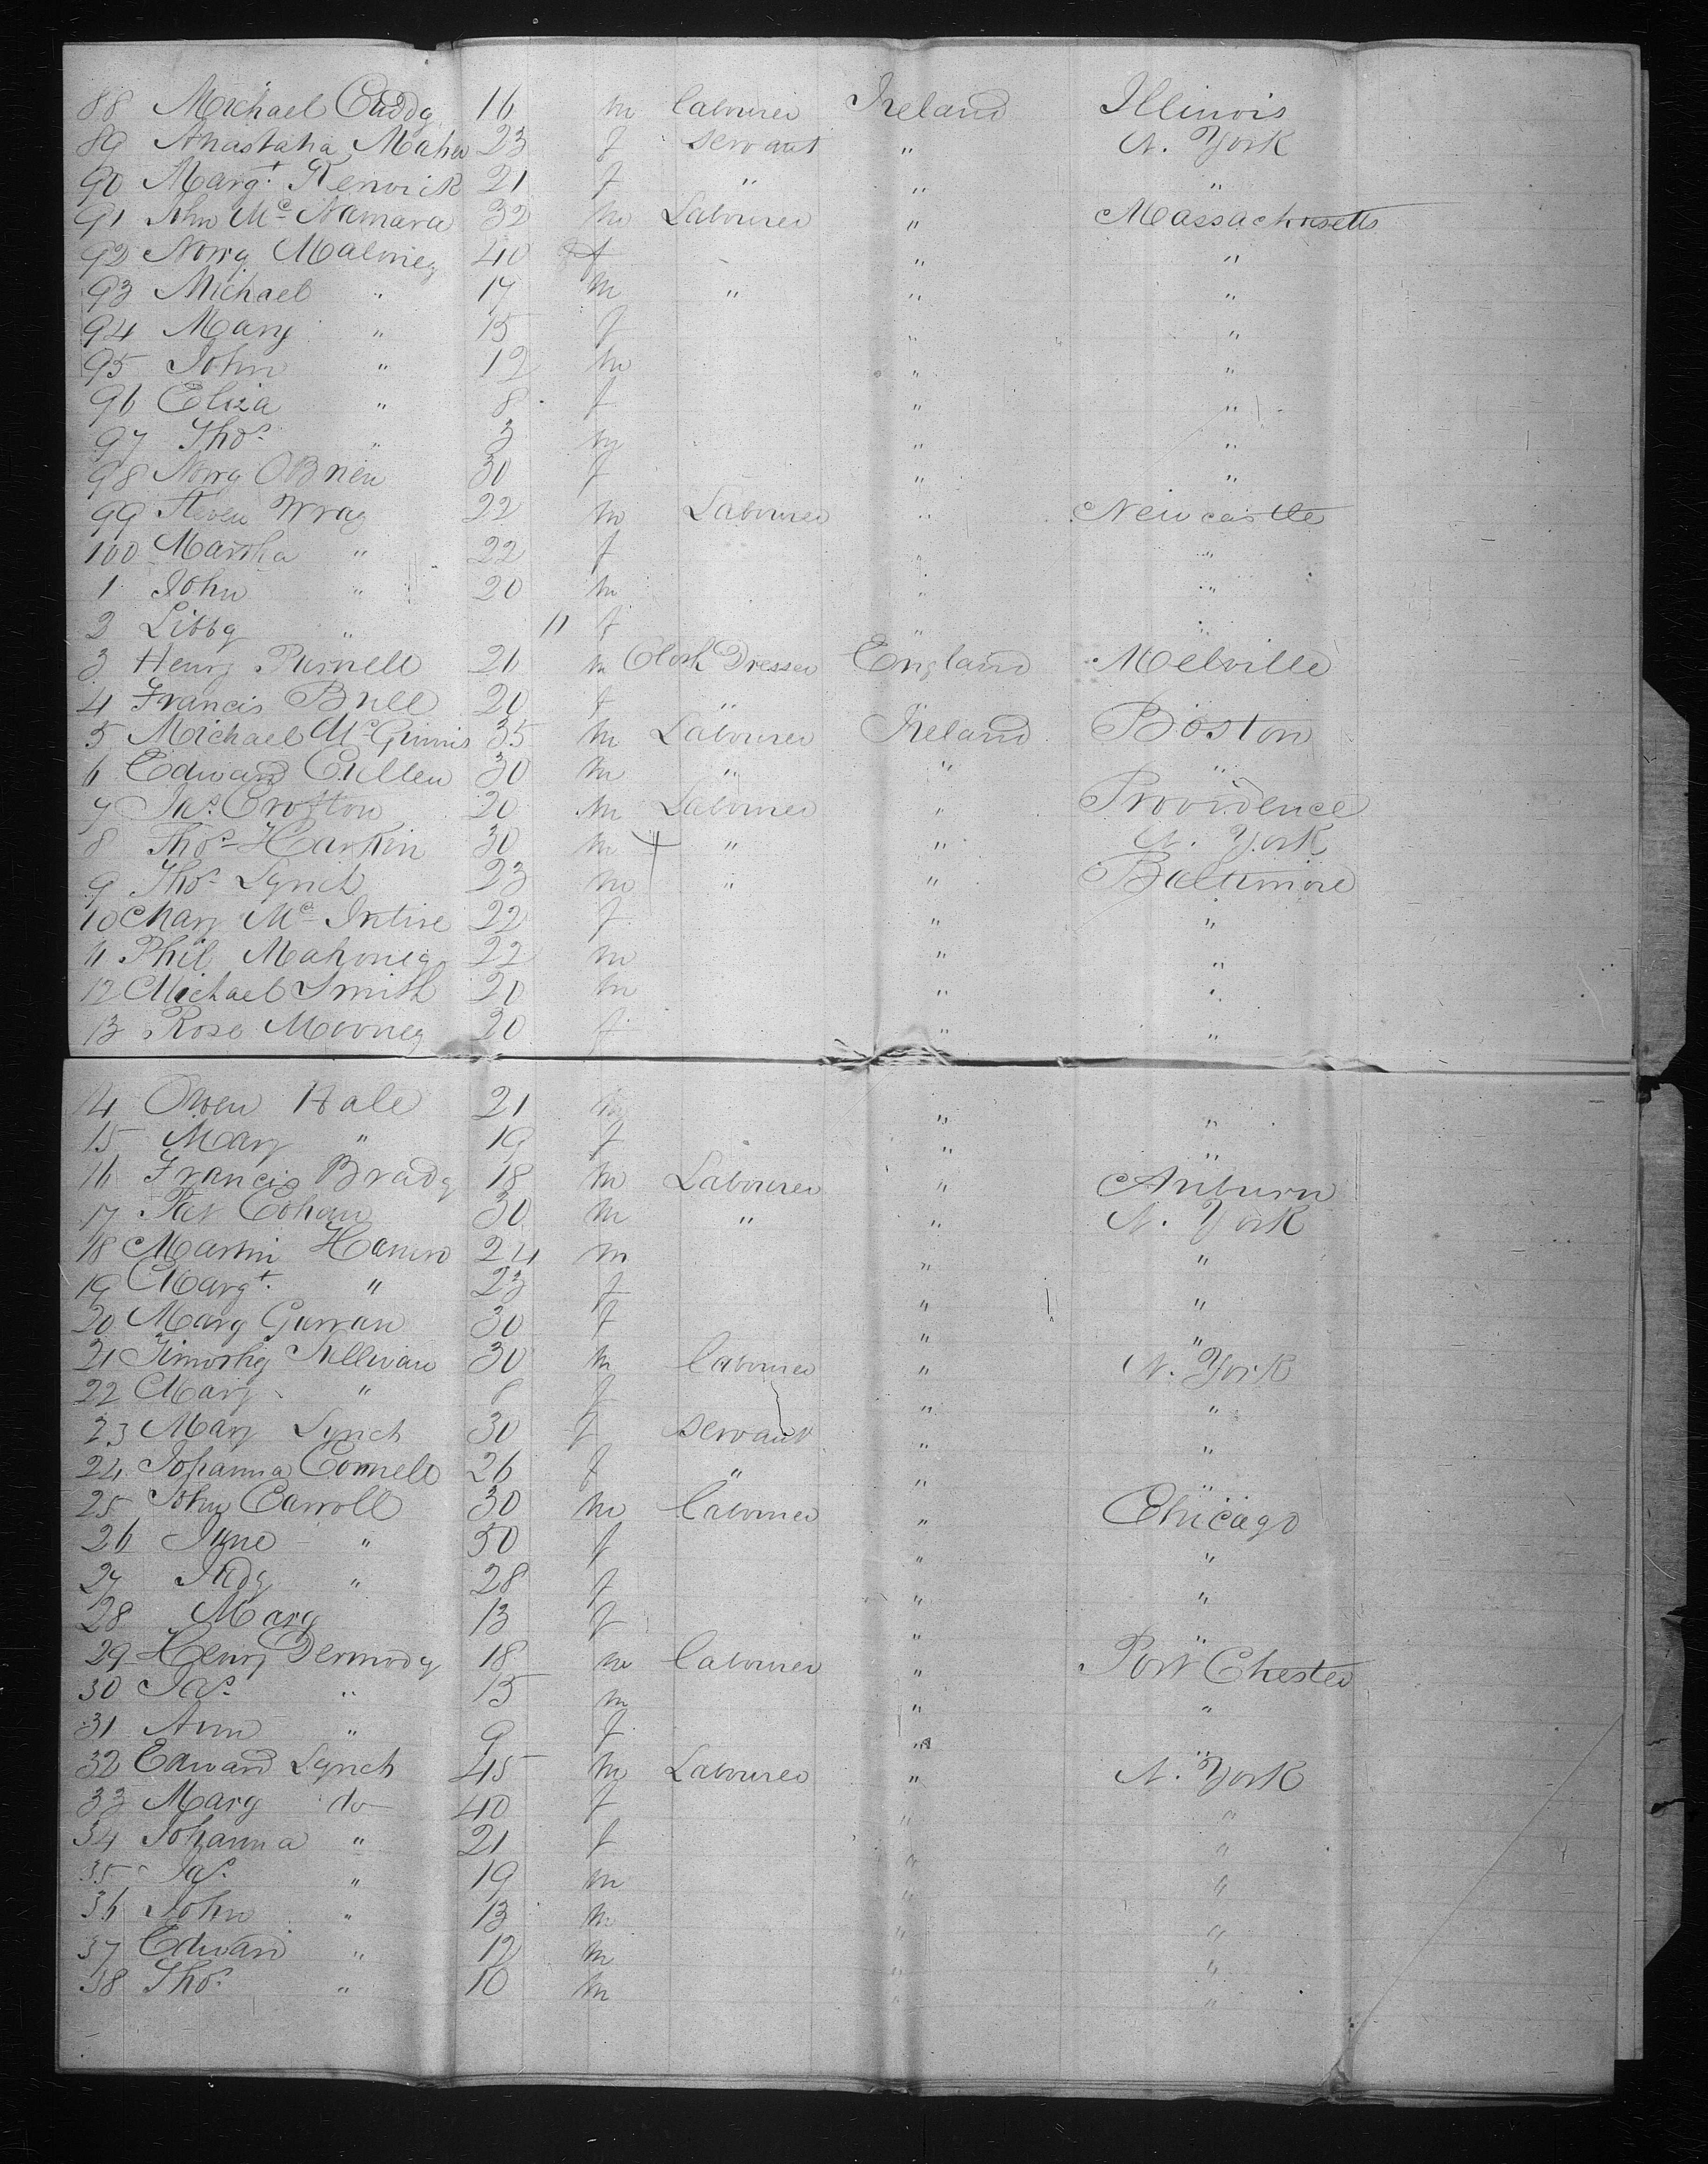 88 Michael Cuddy 16 m labourer Ireland Illinois
89 Anastatia Maher 23 f servant " N. York
90 Margt. Renwick 21 f " " "
91 John Mc Namara 32 m Labourer " Massachusetts
92 Norry Maloney 40 f " "
93 Michael " 17 m " " "
94 Mary " 15 f " "
95 John " 12 m " "
96 Eliza " 8 f " "
97 Thos. " 3 m " "
98 Norry OBrien 30 f " "
99 Steven Wray 22 m Labourer " Newcastle
100 Martha " 22 f " "
1 John " 20 m " "
2 Libby " 11 f " "
3 Henry Purnell 26 m Cloth Dresser England Melville
4 Francis Bull 20 f "
5 Michael Mc Ginnis 35 m Labourer Ireland Boston
6 Edward Cullen 30 m " " "
7 Jas. Crofton 20 m Labourer " Providence
8 Thos. Harkin 30 m " " N. York
9 Thos. Lynch 23 m " " Baltimore
10 Mary Mc Intire 22 f " "
11 Phil Mahoney 22 m " "
12 Michael Smith 20 m " "
13 Rose Mooney 20 f " "
14 Owen Hale 21 m " "
15 Mary " 19 f " "
16 Francis Brady 18 m Labourer " Auburn
17 Pat Cohan 30 m " " N. York
18 Martin 24 m " "
19 Margt. " 23 f " "
20 Mary Curran 30 f " "
21 Timothy Sullivan 30 m labourer " N. York
22 Mary " 8 f " "
23 Mary Lynch 30 f servant " "
24 Johanna Connell 26 f " " "
25 John Carroll 30 m labourer " Chicago
26 " 50 f " "
27 Judy " 28 f " "
28 Mary 13 f " "
29 Henry Dermody 18 m labourer " Port Chester
30 Jas. " 15 m " "
31 Ann " 9 f " "
32 Edward Lynch 45 m Labourer " N. York
33 Mary do 40 f " "
34 Johanna " 21 f " "
35 Jas. " 19 m " "
36 John " 13 m " "
37 Edward " 12 m " "
38 Thos. " 10 m " "